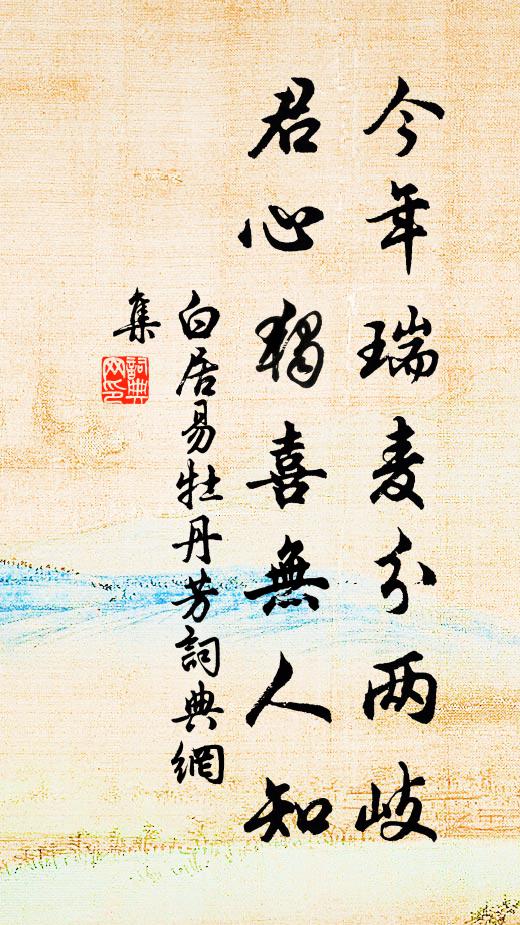 今年瑞麦分两岐
君心獨喜無人知
白居易牡丹芳詞典網
集
詞典
网印